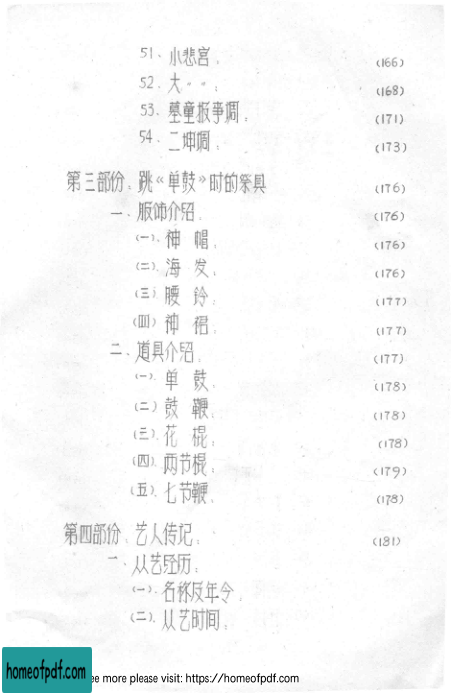 51、小悲宫、 (166)
52、大〃〃： (168)
53、墓童报争调： (171)
54、二坤调： (173)
第三部份：跳《单鼓》时的祭具 (176)
一、服饰介绍、 (176)
(一)、神 帽、 (176)
(二)、海 发、 (176)
(三)、腰 铃： (177)
(四)、神 裙： (177)
二、道具介绍、 (177)
(一)、单 鼓、 (178)
(二)、鼓 鞭： (178)
(三)、花 棍： (178)
(四)、两节棍： (179)
(五)、七节鞭、 (178)
第四部份、艺人传记： (181)
一、从艺经历：
(一)、名称及年令、
(二)、从艺时间：
homeofpdf.com
ee more please visit: https://homeofpdf.com